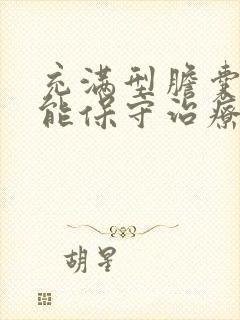 充满型胆囊
能保守治疗
胡星